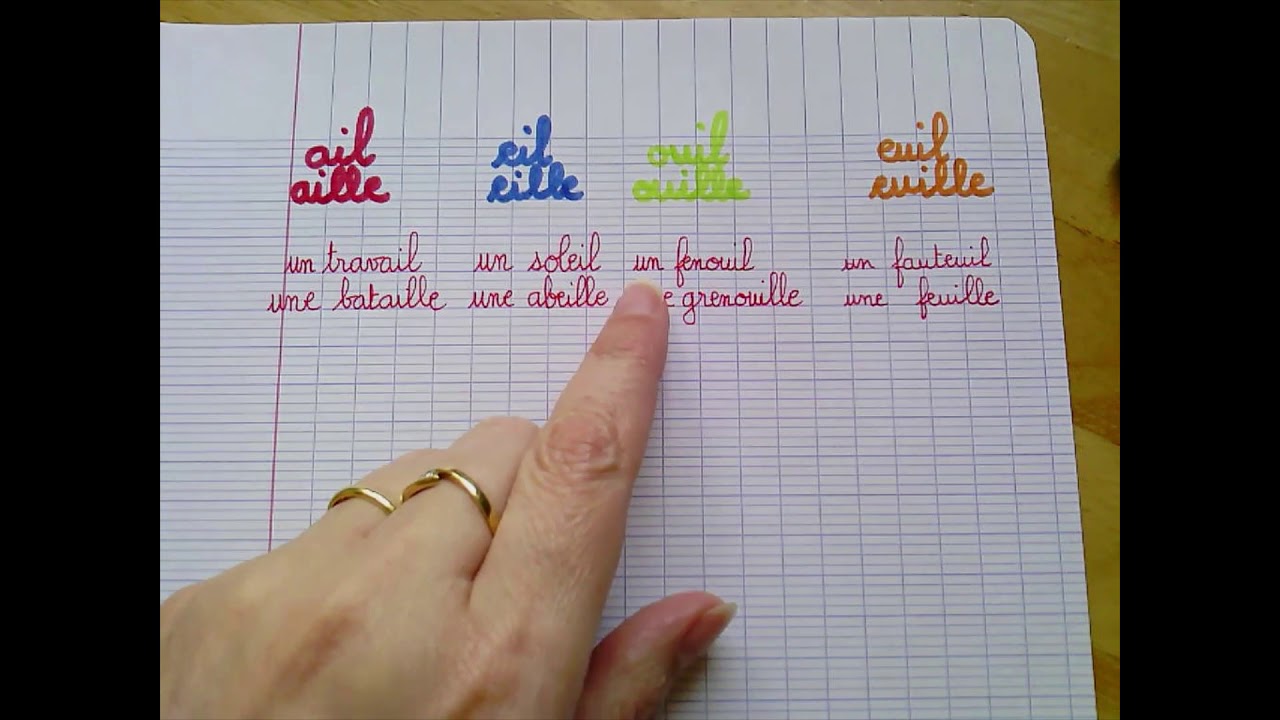 ail eil ouil euil
aille eille ouille euille
un travail un soleil un fenouil un fauteuil
une bataille une abeille e grenouille une feuille